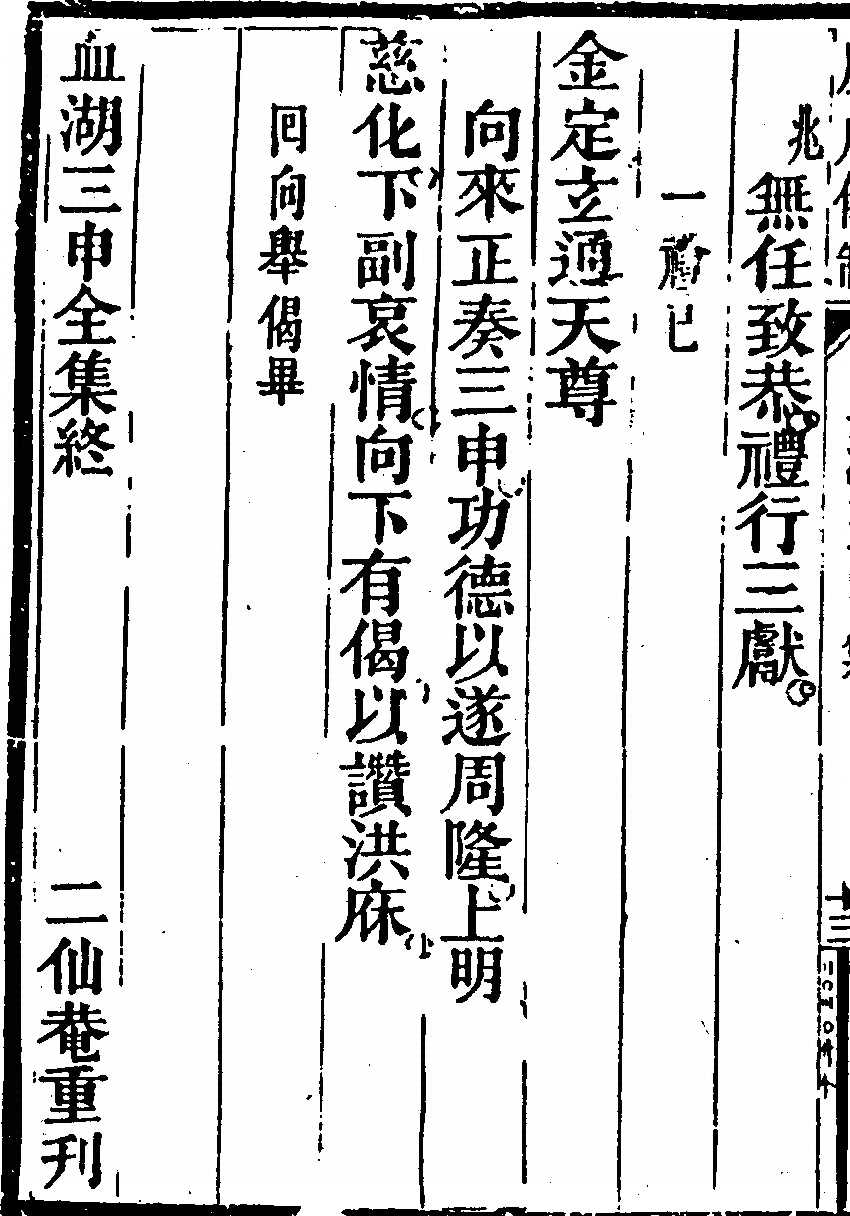 兆無任致恭禮行三獻
一禮已
金定立通天尊
向來正奏三申功德以遂周隆上明
慈化下副哀情向下有偈以讚洪庥
回向舉偈畢
血湖三申全集終 二仙菴重刊
十三